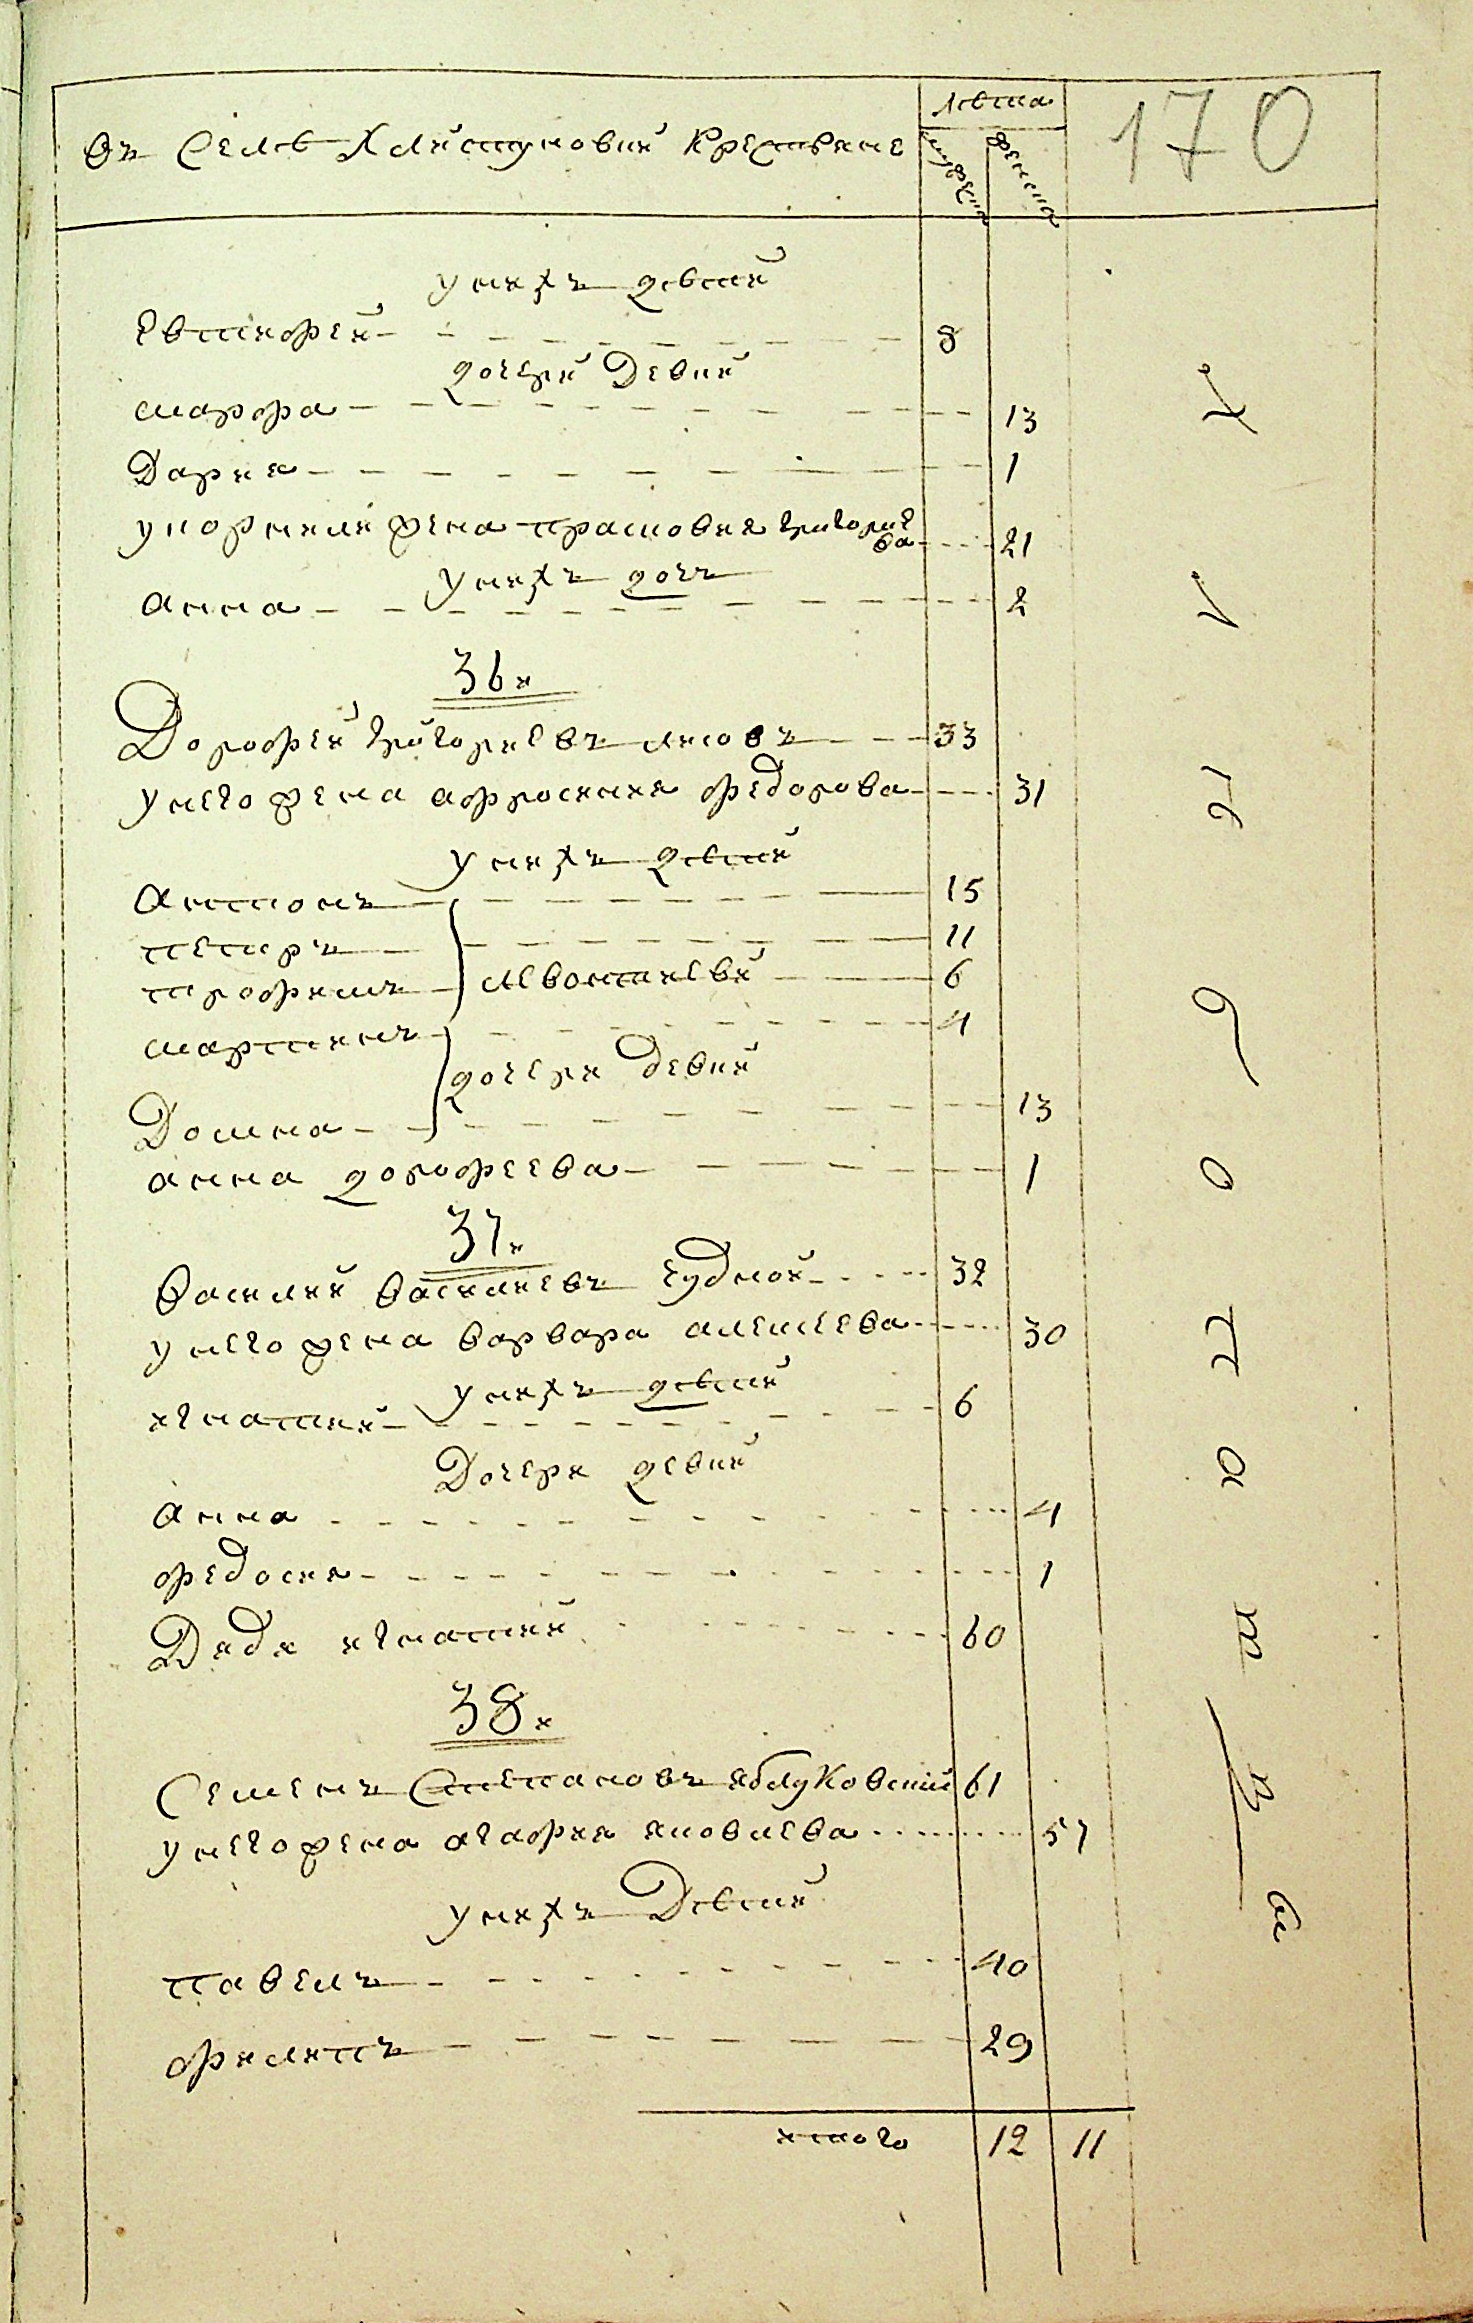 въ Селѣ Хлистуновки Крестьяне
Лѣта
мужеска
женска
170
у нихъ дѣти
Евтифей
8
дочери Девки
марфа
13
Дария
1
у корнилия жена прасковия григорие
ва
21
у нихъ дочь
анна
2
36
Дорофей григориевъ
33
у него жена афросиния федорова
31
у нихъ дѣти
антонъ
15
петръ
11
трофимъ
леонтиеви
6
мартинъ
4
дочери девки
Домна
13
анна дорофеева
1
37
василий василиевъ чудной
32
у него жена варвара алексеева
30
у нихъ дѣти
игнатий
6
Дочери девки
анна
4
федосия
1
Дядя игнатий
60
38
Семенъ Степановъ яблуковский
61
у него жена агафия яковлева
57
у нихъ Дѣти
павелъ
40
филипъ
29
итого
12
11